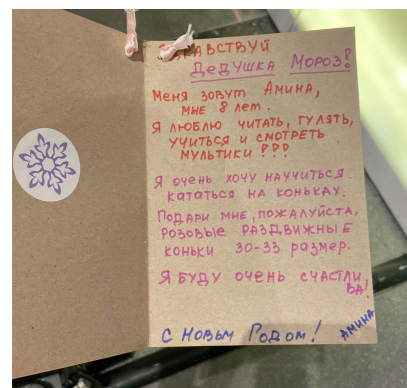 ЗДРАВСТВУЙ
ДЕДУШКА МОРОЗ!
Меня зовут Амина,
мне 8 лет.
Я люблю читать, гулять,
учиться и смотреть
мультики!!!
Я очень хочу научиться
кататься на коньках.
Подари мне, пожалуйста,
розовые раздвижные
коньки 30-33 размер.
Я буду очень счастли
ва!
С Новым Годом!
Амина